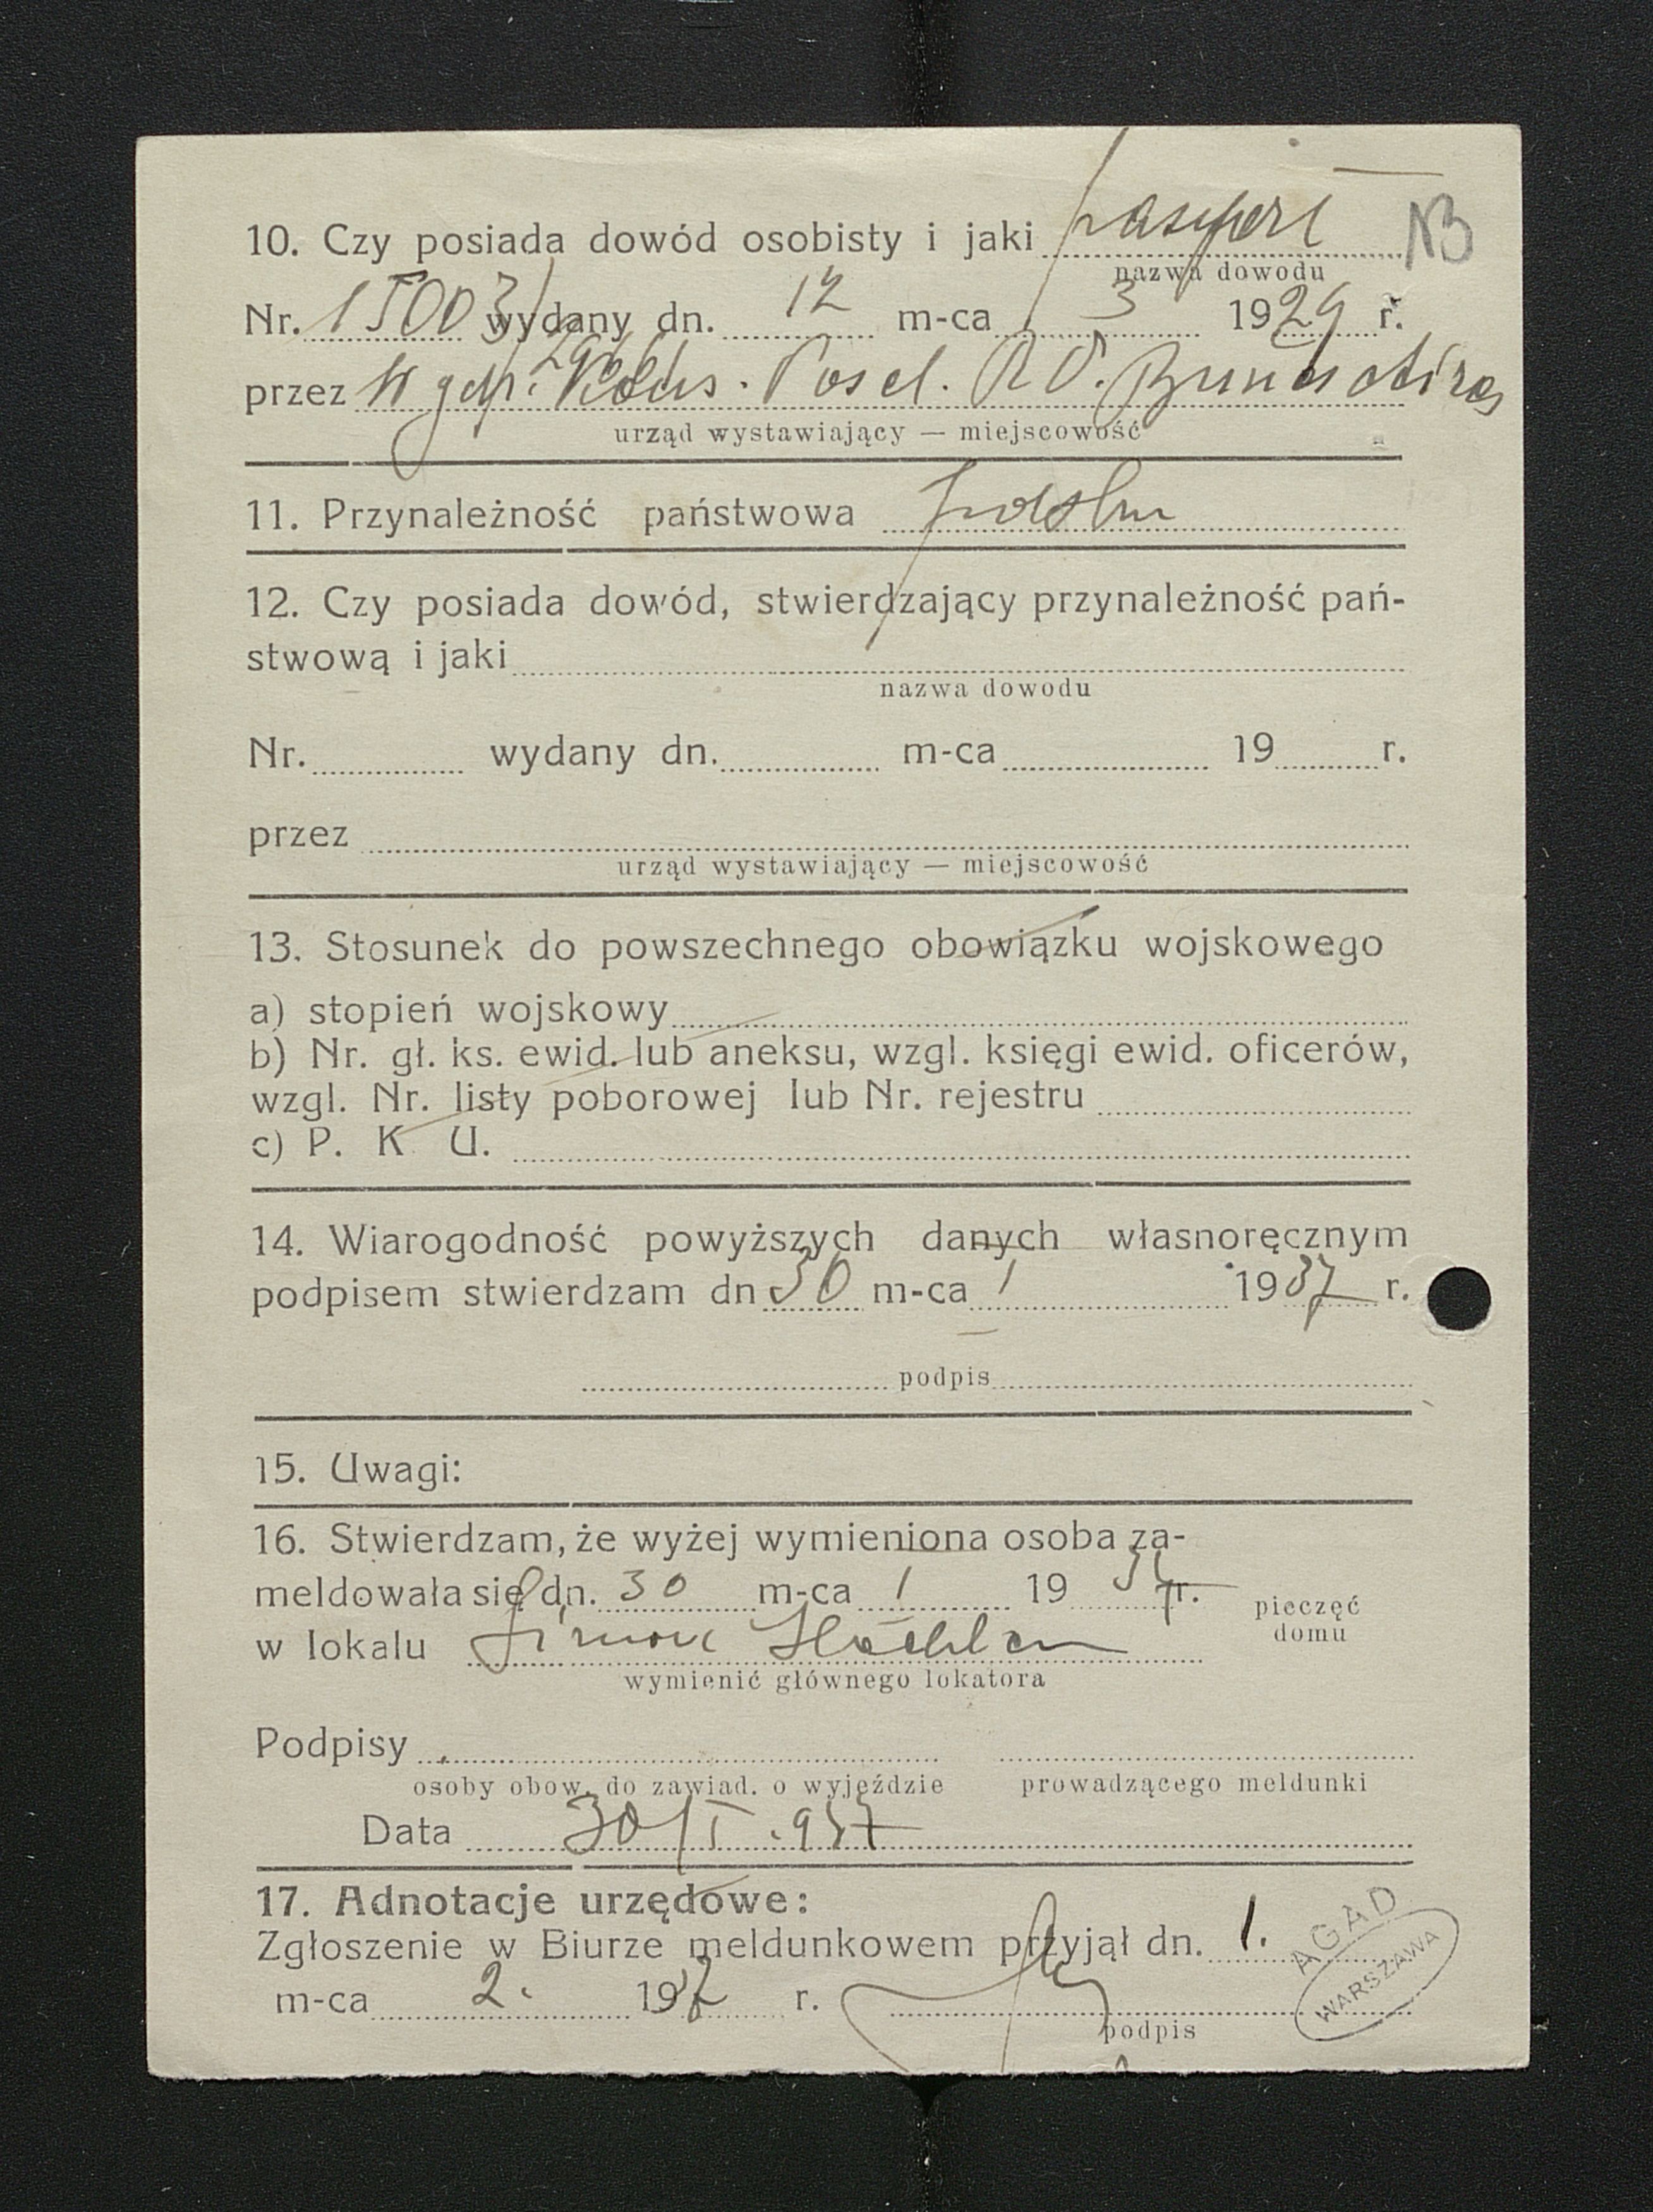 10. Czy posiada dowód osobisty i jaki paszport NB
nazwa dowodu
Nr. 15003/ wydany dn. 12 m-ca 3 1929 r.
przez Posel. R P.
urząd wystawiający — miejscowość
11. Przynależność państwowa polska
12. Czy posiada dowód, stwierdzający przynależność pań-
stwową i jaki
nazwa dowodu
Nr. wydany dn. m-ca 19 r.
przez
urząd wystawiający — miejscowość
13. Stosunek do powszechnego obowiązku wojskowego
a) stopień wojskowy
b) Nr. gł. ks. ewid. lub aneksu, wzgl. księgi ewid. oficerów,
wzgl. Nr. listy poborowej lub Nr. rejestru
c) P. K U.
14. Wiarogodność powyższych danych własnoręcznym
podpisem stwierdzam dn 30 m-ca 1 1937 r.
podpis
15. Uwagi:
16. Stwierdzam, że wyżej wymieniona osoba za-
meldowała się dn. 30 m-ca 1 1937 r.
pieczęć
domu
w lokalu
wymienić głównego lokatora
Podpisy
osoby obow. do zawiad. o wyjeździe prowadzącego meldunki
Data 30/I .937
17. Adnotacje urzędowe:
Zgłoszenie w Biurze meldunkowem przyjął dn. 1.
m-ca 2. 1937 r.
podpis
AGAD
WARSZAWA